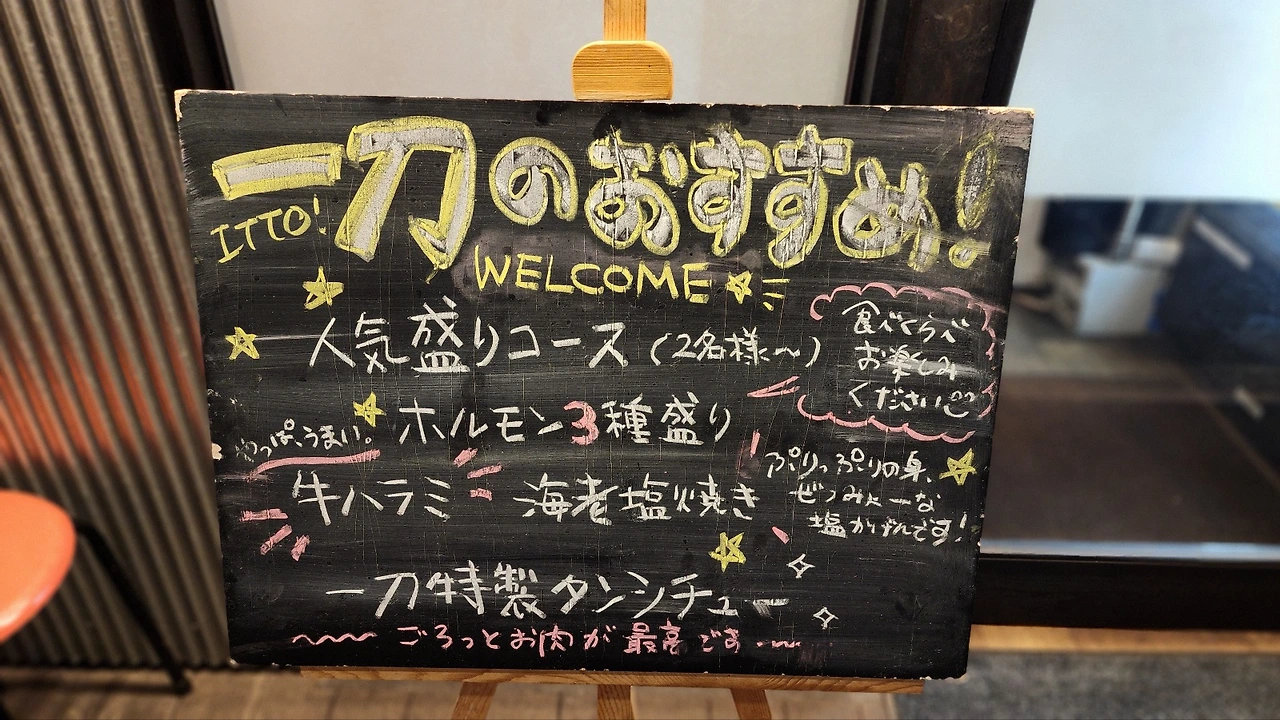 一刀のおすすめ!
ITTO!
WELCOME
人気盛りコース (2名様〜)
食べくらべ
お楽しみ
ください
ホルモン3種盛り
やっぱ、うまい。
牛ハラミ
海老塩焼き
ぷりっぷりの身、
ぜつみょーな
塩かげんです!
一刀特製タンシチュー
〜 ごろっとお肉が最高です 〜